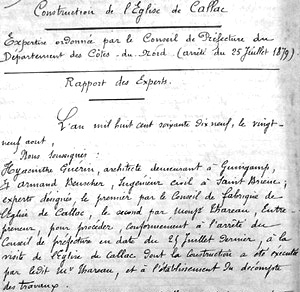 Construction de l'Eglise de Callac
Expertise ordonnée par le Conseil de Préfecture du
Département des Côtes-du-Nord (arrêté du 25 Juillet 1879)
Rapport des Experts.
L'an mil huit cent soixante dix neuf, le vingt-
neuf aout,
Nous soussignés :
Hyacinthe Guérin, architecte demeurant à Guingamp,
et Armand, Ingénieur civil à Saint Brieuc,
experts désignés, le premier par le Conseil de fabrique de
l'Eglise de Callac, le second par Thareau, Entre-
preneur, pour procéder, conformément à l'arrêté du
Conseil de préfecture en date du 25 juillet dernier, à la
visite de l'Eglise de Callac dont la construction a été exécutée
par le dit Mr Thareau, et à l'établissement du décompte
des travaux.